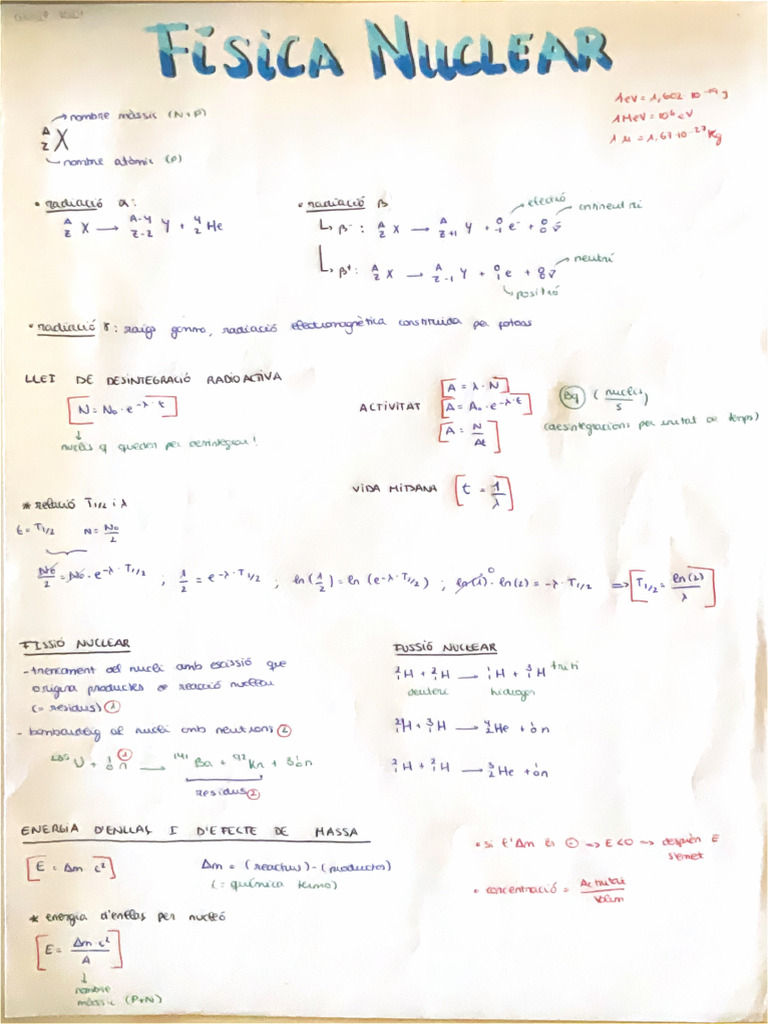 FÍSICA NUCLEAR
1 eV = 1,602·10⁻¹⁹ J
1 MeV = 10⁶ eV
1 u = 1,67·10⁻²⁷ Kg
nombre màssic (N+P)
A Z X
nombre atòmic (P)
• radiació α:
A Z X → A-4 Z-2 Y + 4 2 He
• radiació β
electró
antineutrí
β⁻: A Z X → A Z+1 Y + 0 -1 e⁻ + 0 0 ν̄
neutrí
β⁺: A Z X → A Z-1 Y + 0 1 e + 0 0 ν
positró
• radiació γ: raigs gamma, radiació electromagnètica constituida per fotons
LLEI DE DESINTEGRACIÓ RADIOACTIVA
[N = N₀·e^-λ·t]
nuclis q queden per desintegrar!
ACTIVITAT
[A = λ·N]
[A = A₀·e^-λ·t]
[A = N/Δt]
Bq (nuclis/s)
(desintegracions per unitat de temps)
VIDA MITJANA [t = 1/λ]
* relació T1/2 i λ
t = T1/2 N = N₀/2
N₀/2 = N₀·e^-λ·T1/2 ; 1/2 = e^-λ·T1/2 ; ln(1/2) = ln(e^-λ·T1/2) ; ln(1)⁰ - ln(2) = -λ·T1/2 => [T1/2 = ln(2)/λ]
FISSIÓ NUCLEAR
- trencament del nucli amb escissió que
origina productes de reacció nuclear
(= residus) ①
- bombardeig al nucli amb neutrons ②
235 U + 1 0 n ① → 141 Ba + 92 Kn + 3 1 0 n
residus ②
FUSSIÓ NUCLEAR
2 1 H + 2 1 H → 1 1 H + 3 1 H triti
deuteri hidrogen
2 1 H + 3 1 H → 4 2 He + 1 0 n
2 1 H + 2 1 H → 3 2 He + 1 0 n
ENERGIA D'ENLLAÇ I D'EFECTE DE MASSA
[E = Δm c²]
Δm = (reactius) - (productes)
(= química termo)
* energia d'enllaç per nucleó
[E = Δm·c²/A]
nombre
màssic (P+N)
• si l'Δm és ⊖ => E<0 => desprèn E
• concentració = Activitat/Volum